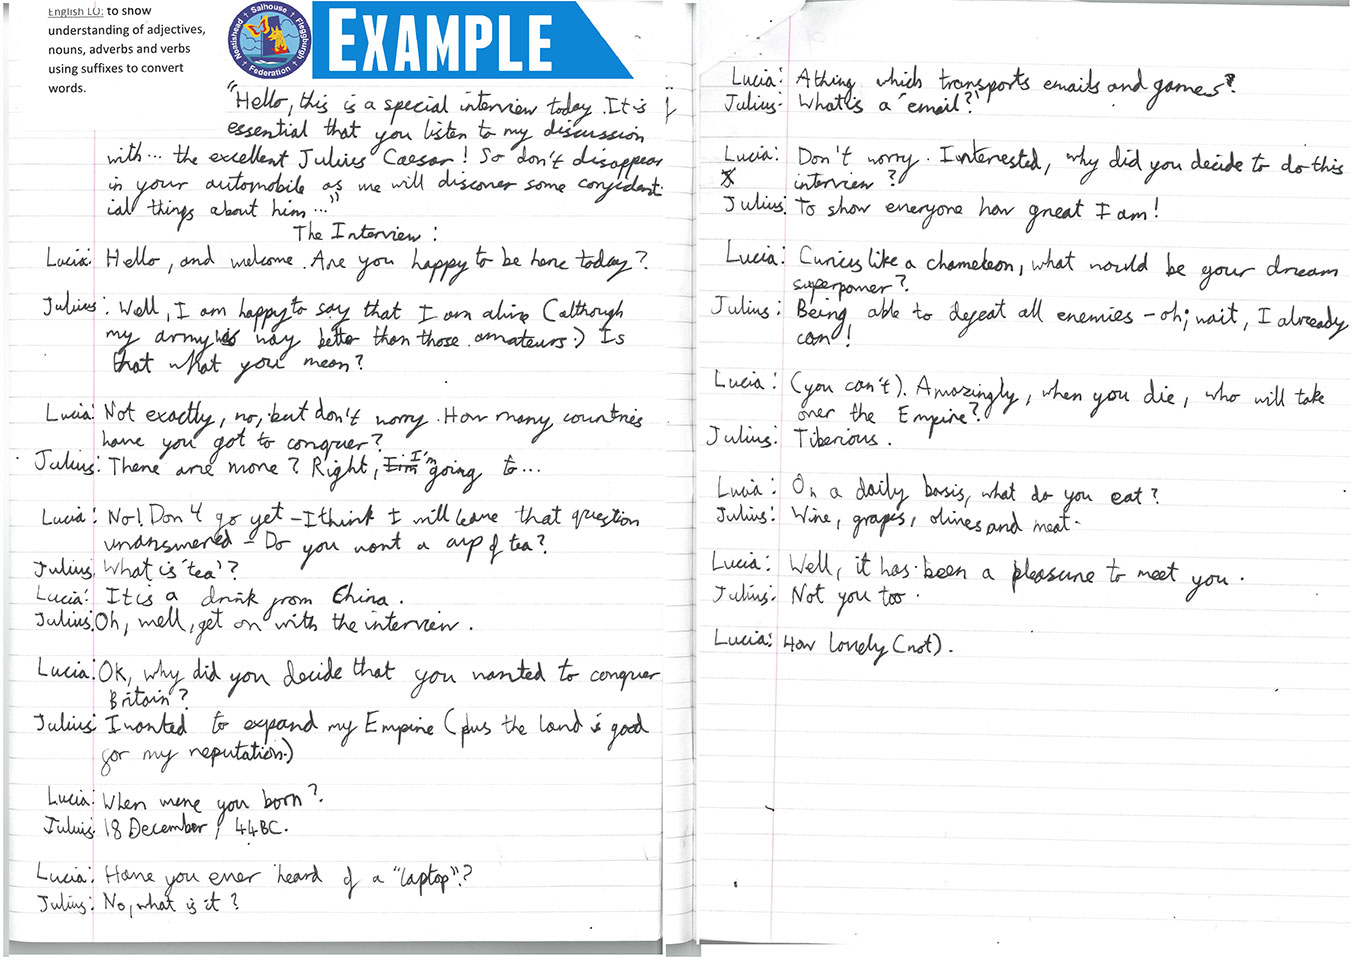 English LO: to show
understanding of adjectives,
nouns, adverbs and verbs
using suffixes to convert
words.
Neatishead Salhouse Fleggburgh
Federation
EXAMPLE
"Hello, this is a special interview today. It is
essential that you listen to my discussion
with... the excellent Julius Caesar! So don't disappear
in your automobile as we will discover some confident-
ial things about him..."
The Interview:
Lucia: Hello, and welcome. Are you happy to be here today?
Julius: Well, I am happy to say that I am alive (although
my army was way better than those amateurs.) Is
that what you mean?
Lucia: Not exactly, no, but don't worry. How many countries
have you got to conquer?
Julius: There are more? Right, I'm I'm going to...
Lucia: No! Don't go yet - I think I will leave that question
unanswered - Do you want a cup of tea?
Julius: What is 'tea'?
Lucia: It is a drink from China.
Julius: Oh, well, get on with the interview.
Lucia: OK, why did you decide that you wanted to conquer
Britain?
Julius: I wanted to expand my Empire (plus the land is good
for my reputation.)
Lucia: When were you born?
Julius: 18 December, 44BC.
Lucia: Have you ever heard of a "laptop"?
Julius: No, what is it?
Lucia: A thing which transports emails and games?
Julius: What is a "email?"
Lucia: Don't worry. Interested, why did you decide to do this
interview?
Julius: To show everyone how great I am!
Lucia: Curious like a chameleon, what would be your dream
superpower?
Julius: Being able to defeat all enemies - oh, wait, I already
can!
Lucia: (you can't). Amazingly, when you die, who will take
over the Empire?
Julius: Tiberious.
Lucia: On a daily basis, what do you eat?
Julius: Wine, grapes, olives and meat.
Lucia: Well, it has been a pleasure to meet you.
Julius: Not you too.
Lucia: How lovely (not).